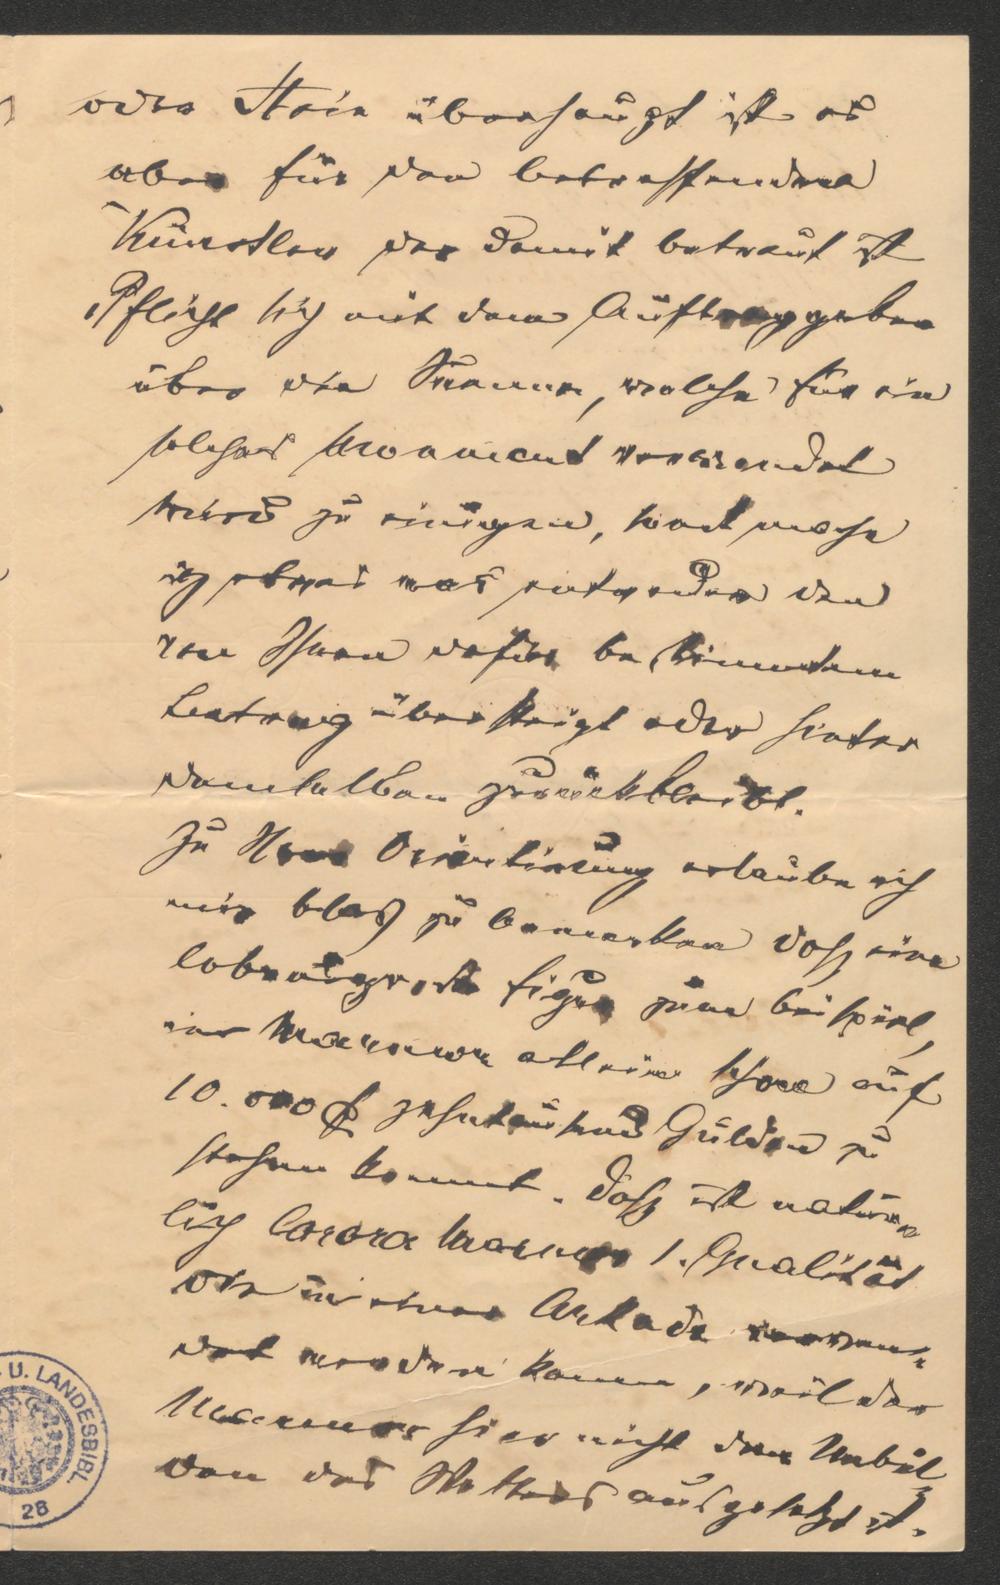 oder Stein überhaupt ist es
aber für den betreffenden
Künstler der damit betraut ist
Pflicht sich mit dem Auftraggeber
über die Summe, welche für ein
solches Monument verwendet
wird zu einigen, sonst mache
ich etwas was entweder den
von Ihnen dafür bestimmten
Betrag übersteigt oder hinter
demselben zurückbleibt.
Zu Ihrer Orientirung erlaube ich
mir blos zu bemerken daß eine
lebensgroße Figur zum beispiel,
in Marmor allein schon auf
10.000 f zehntausend Gulden zu
stehen kommt. Daß ist natür-
lich Carara Marmor 1. Qualität
die in einer Arkade verwen-
det werden kann, weil der
Marmor hier nicht den Unbil-
den des Wetters ausgesetzt ist.
U. LANDESBIBL.
28